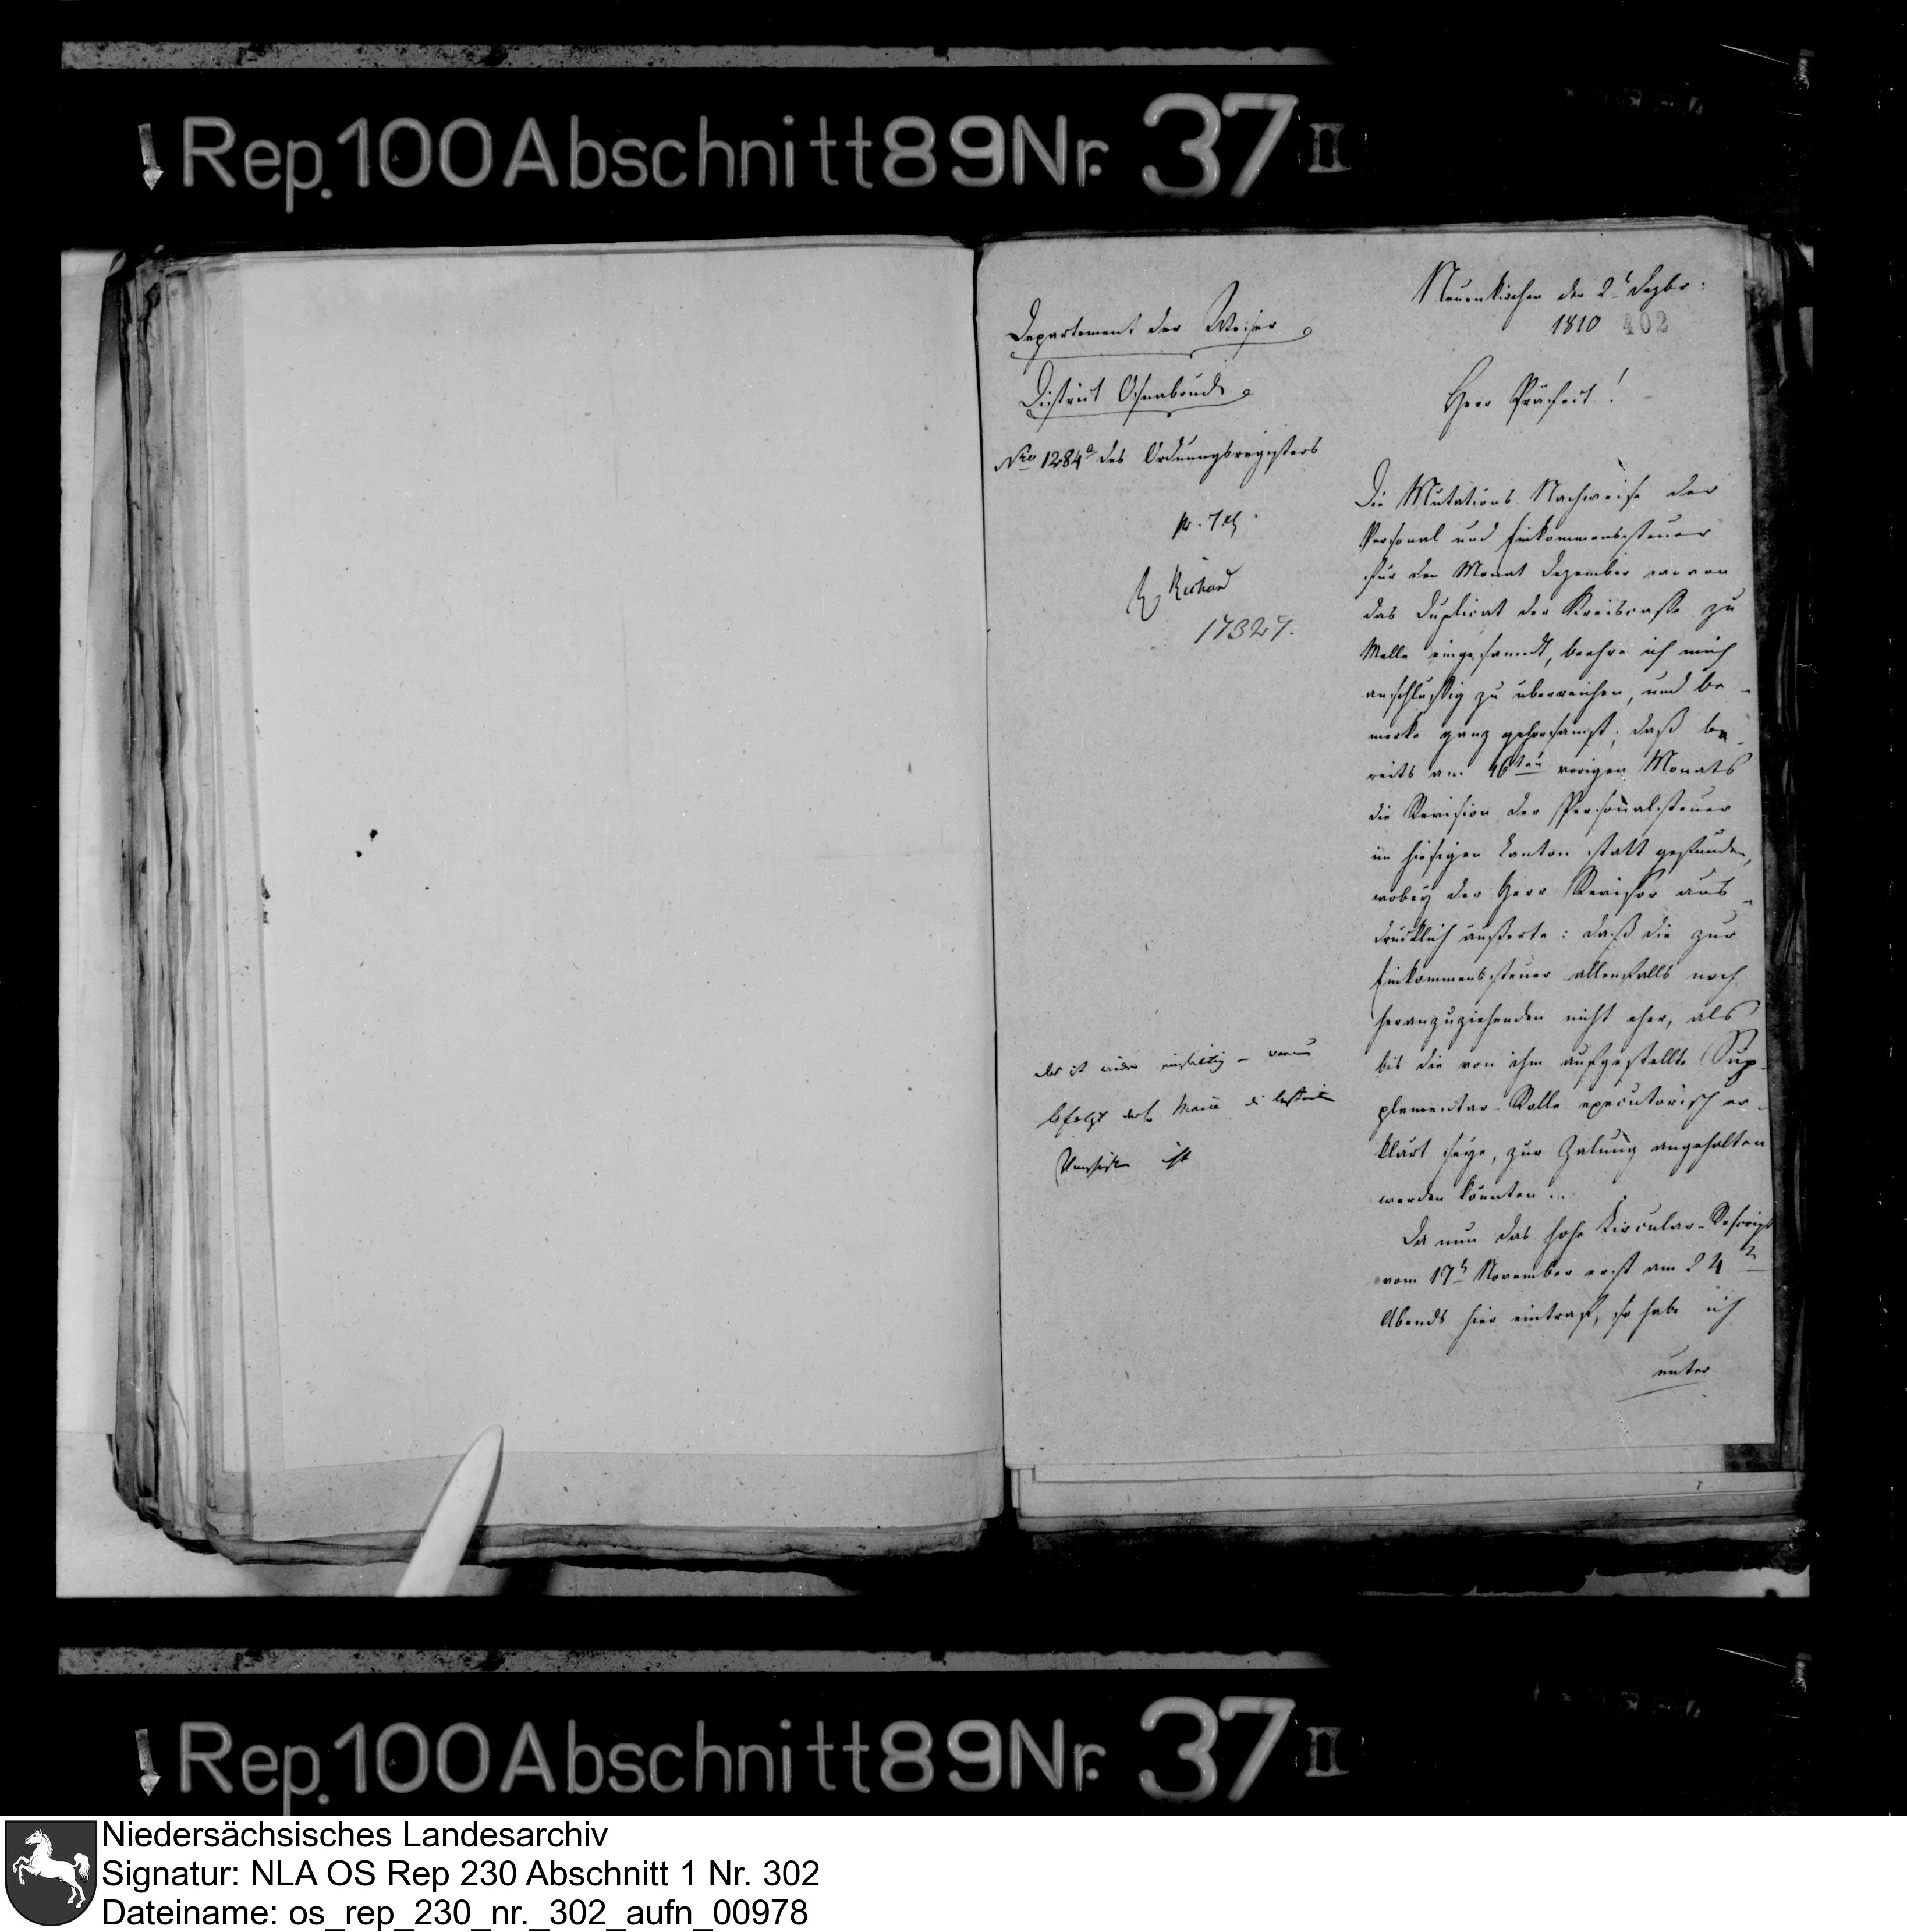 Rep. 100 Abschnitt 89 Nr. 37 II
Neuenkirchen den 2t Dezbr:
1810 402
Departement der Weser
District Osnabrück
Nro 1284a des Ordnungsregisters
Herr Präfect!
pr. 7
Richard
17327.
Die Mutations Nachweise der
Personal und Einkommensteuer
für den Monat Dezember wovon
das Duplicat der Kreiscasse zu
Melle eingesandt, beehre ich mich
anschlüssig zu überreichen, und be-
merke ganz gehorsamst; daß be-
reits am 16ten vorigen Monats
die Revision der Personalsteuer
im hiesigen Canton statt gefunden,
wobey der Herr Revisor aus-
drücklich äußerte: daß die zur
Einkommensteuer allenfalls noch
heranzuziehenden nicht eher, als
bis die von ihm aufgestellte Sup-
plementar-Rolle executorisch er-
klärt seye, zur Zalung angehalten
werden könnten.
Da nun das hohe Circular-Rescript
vom 17t November erst am 24t
Abends hier eintraf, so habe ich
unter
das ist
Maire
ist
Rep. 100 Abschnitt 89 Nr. 37 II
Niedersächsisches Landesarchiv
Signatur: NLA OS Rep 230 Abschnitt 1 Nr. 302
Dateiname: os_rep_230_nr._302_aufn_00978